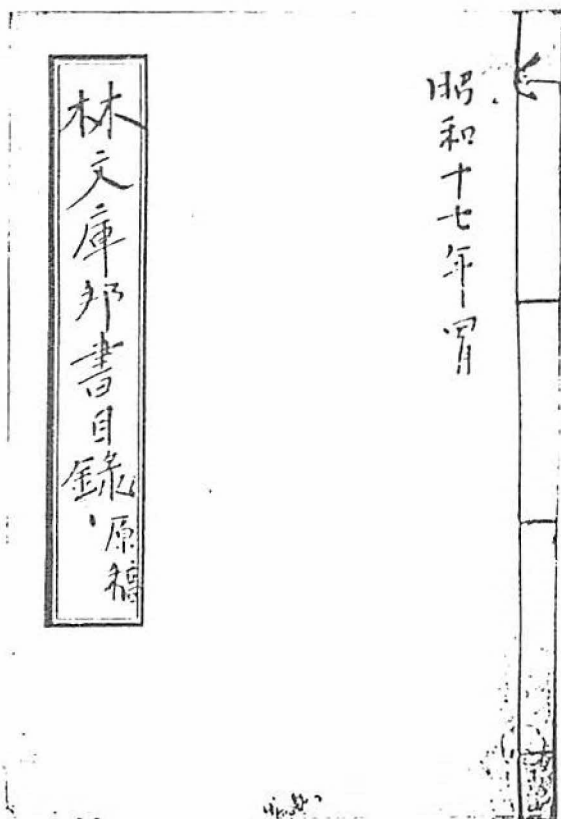 昭和十七年四月
林文庫邦書目録 原稿